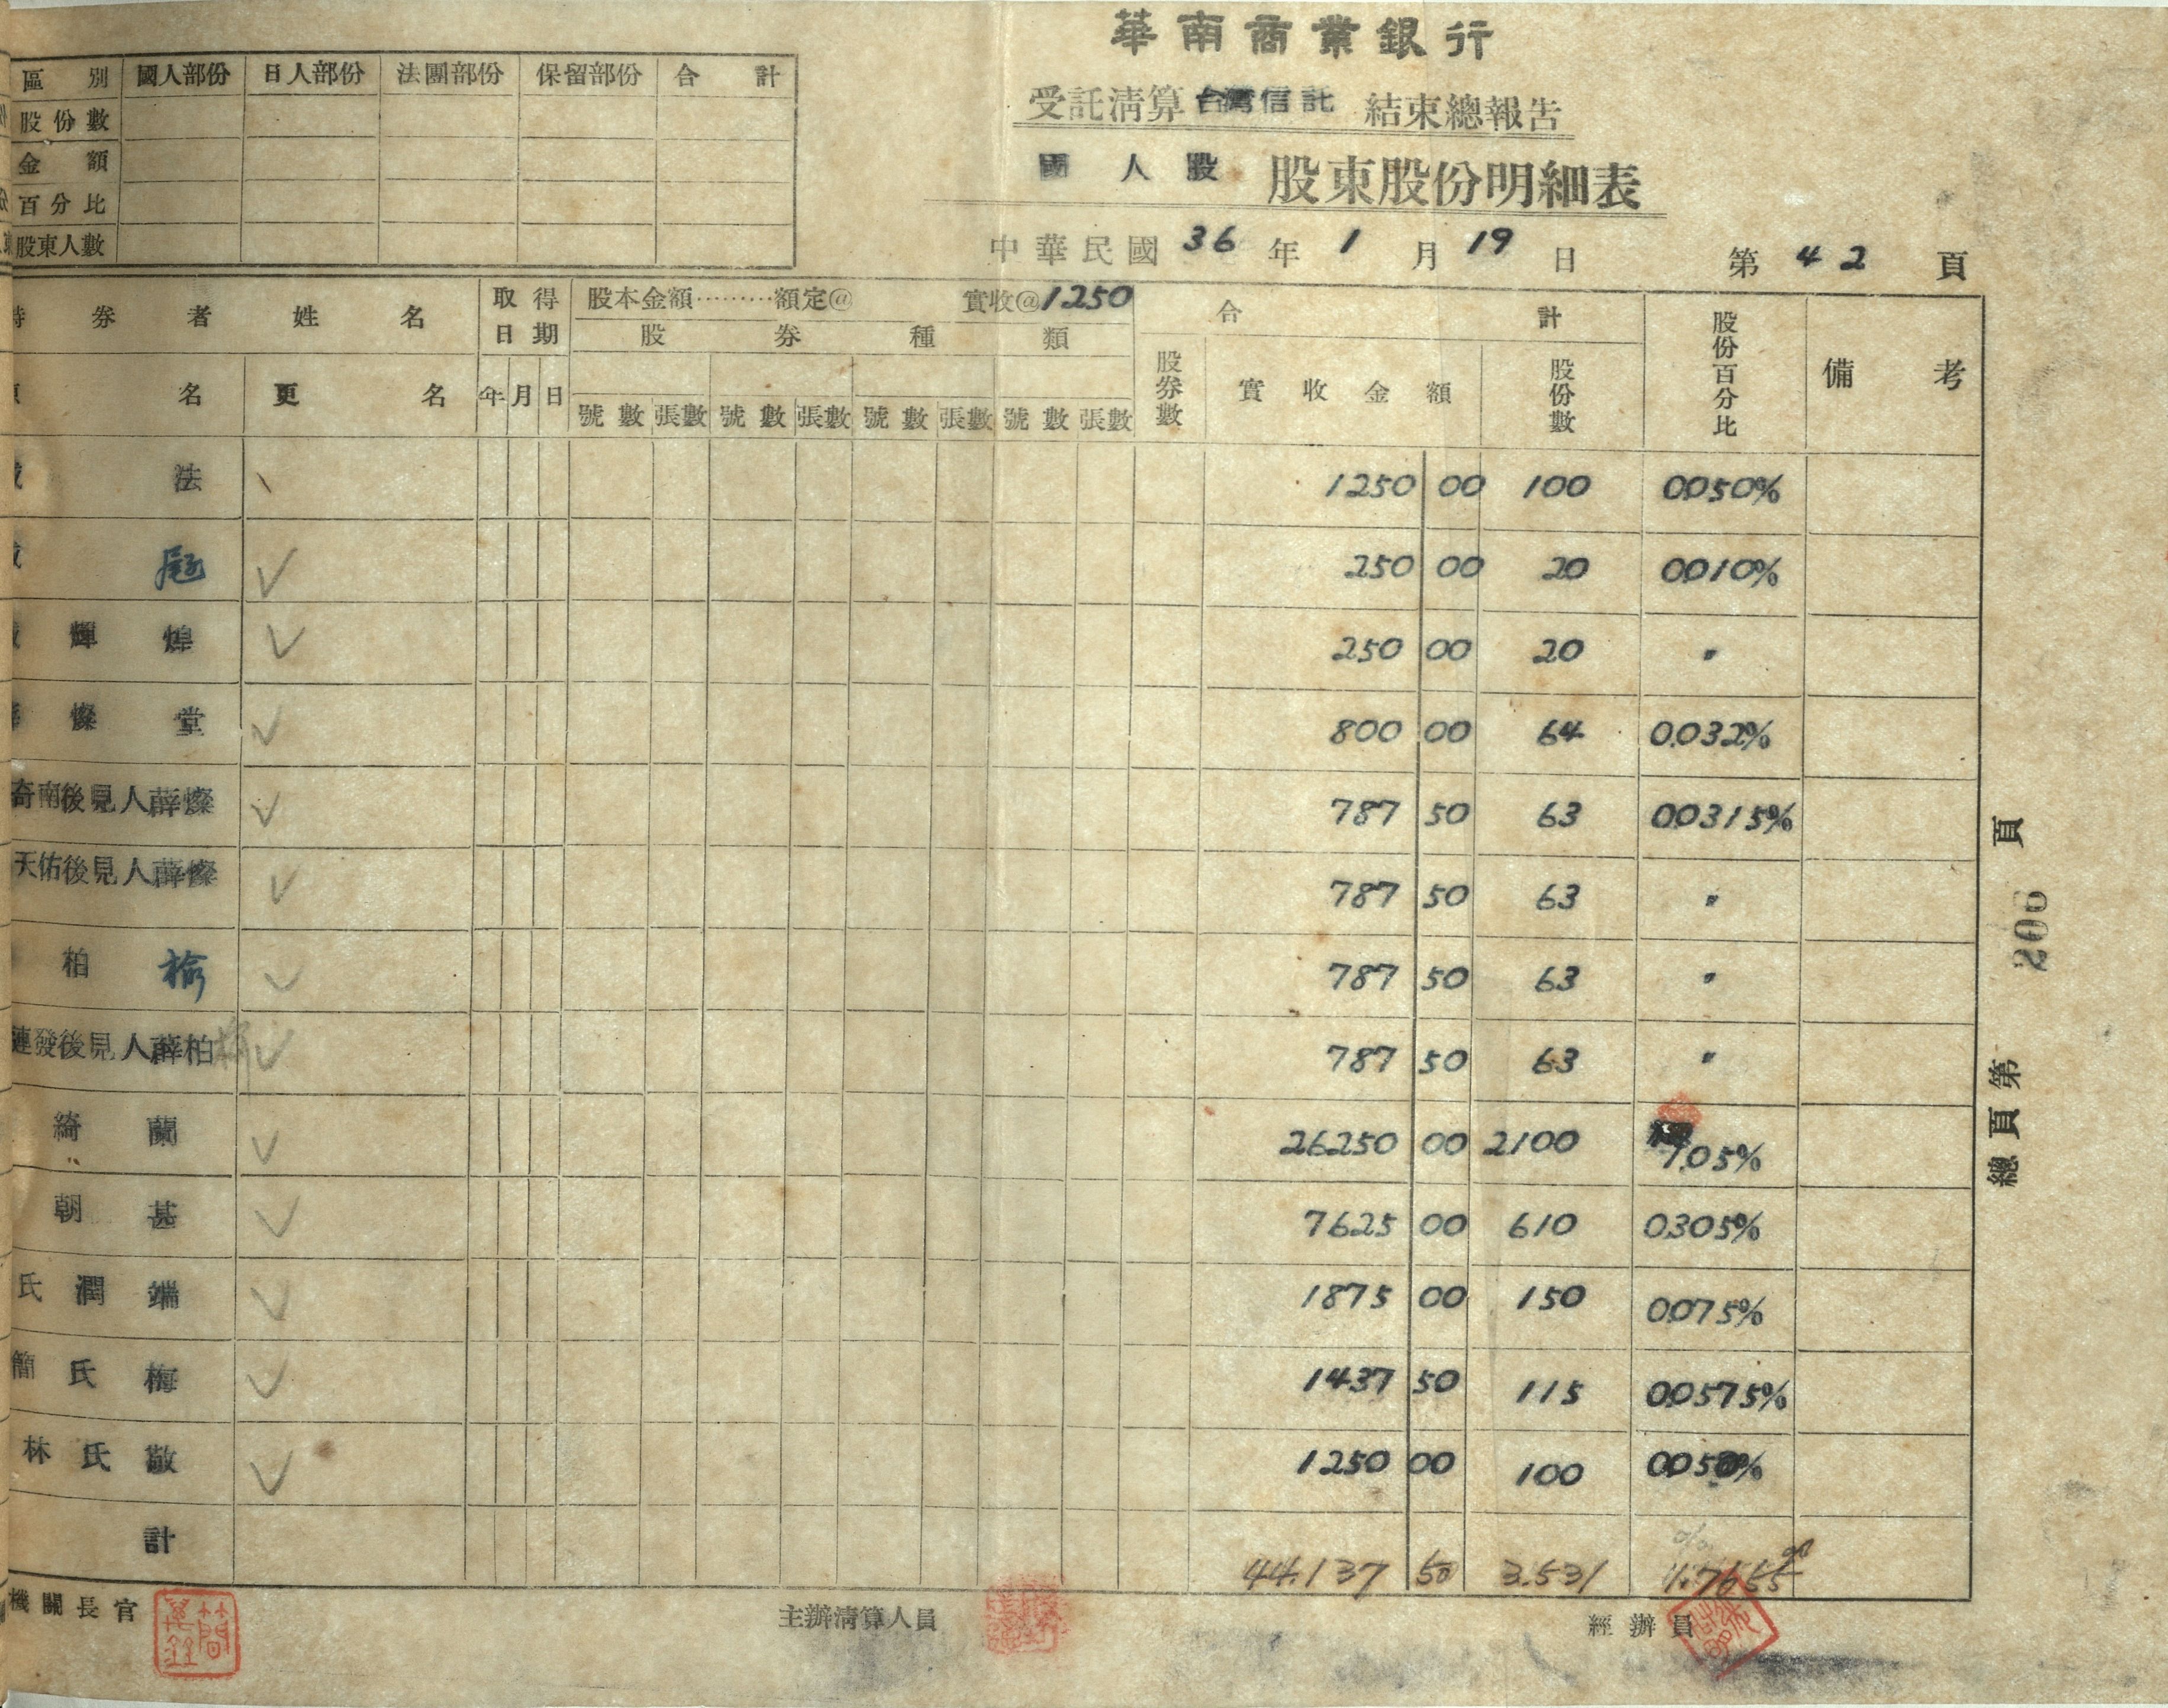 華南商業銀行
受託清算 台灣信託 結束總報告
國人股 股東股份明細表
中華民國 36 年 1 月 19 日 第 42 頁
區別 國人部份 日人部份 法團部份 保留部份 合計
股份數
金額
百分比
股東人數
券者姓名 取得日期 股本金額………額定@ 實收@1250 合計 股份百分比 備考
股券種類
名 更名 年 月 日 股券數 實收金額 股份數
號數 張數 號數 張數 號數 張數 號數 張數
法 1250 00 100 0.050%
250 00 20 0.010%
輝煌 250 00 20 〃
燦堂 800 00 64 0.032%
奇南後見人薛燦 787 50 63 0.0315%
天佑後見人薛燦 787 50 63 〃
柏榆 787 50 63 〃
連發後見人薛柏榆 787 50 63 〃
綺蘭 26250 00 2100 1.05%
朝甚 7625 00 610 0.305%
氏潤端 1875 00 150 0.075%
簡氏梅 1437 50 115 0.0575%
林氏敬 1250 00 100 0.050%
計 44.137 50 3.531 1.7655%
機關長官 主辦清算人員 經辦員
總頁第 206 頁